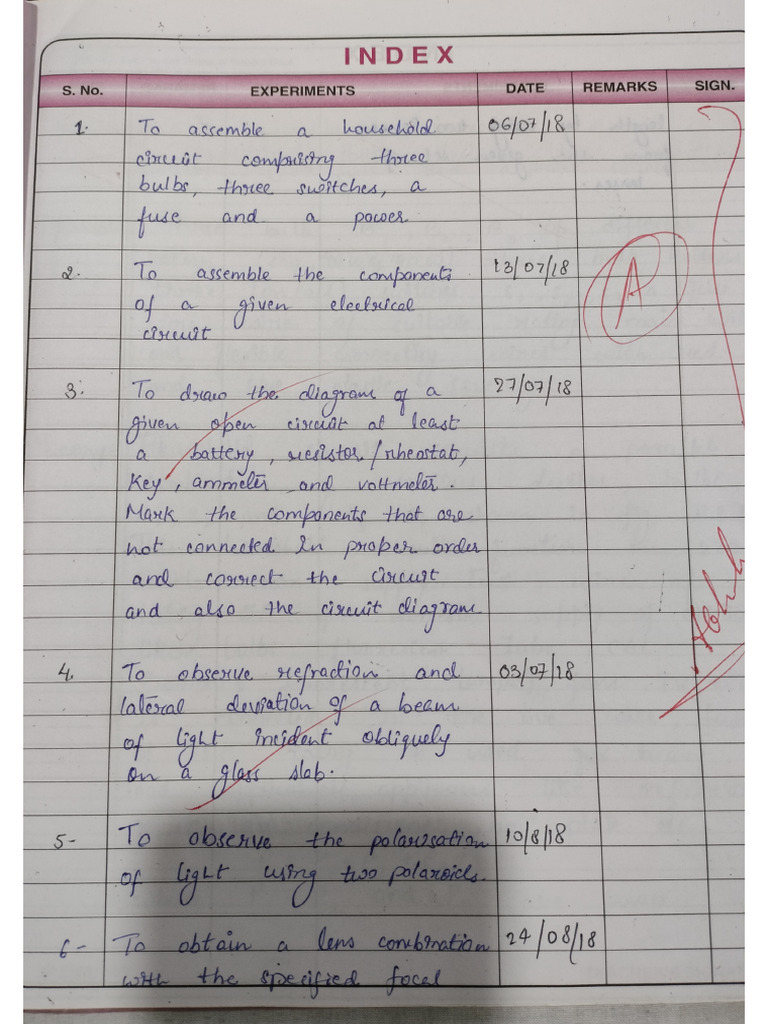 INDEX
S. No. EXPERIMENTS DATE REMARKS SIGN.
1. To assemble a household 06/07/18
circuit comprising three
bulbs, three switches, a
fuse and a power
2. To assemble the components 13/07/18
of a given electrical A
circuit
3. To draw the diagram of a 27/07/18
given open circuit at least
a battery, resistor/rheostat,
Key, ammeter and voltmeter.
Mark the components that are
not connected in proper order
and correct the circuit
and also the circuit diagram
4. To observe refraction and 03/07/18
lateral deviation of a beam
of light incident obliquely
on a glass slab.
5- To observe the polarisation 10/8/18
of light using two polaroids.
6- To obtain a lens combination 24/08/18
with the specified focal